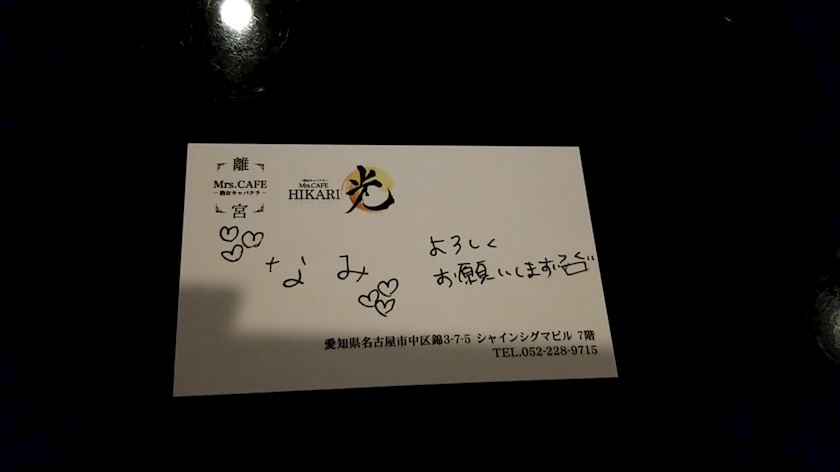 離
Mrs.CAFE
―熟女キャバクラ―
宮
―熟女キャバクラ―
Mrs.CAFE
HIKARI
光
なみ
よろしく
お願いします
愛知県名古屋市中区錦3-7-5 シャインシグマビル 7階
TEL.052-228-9715